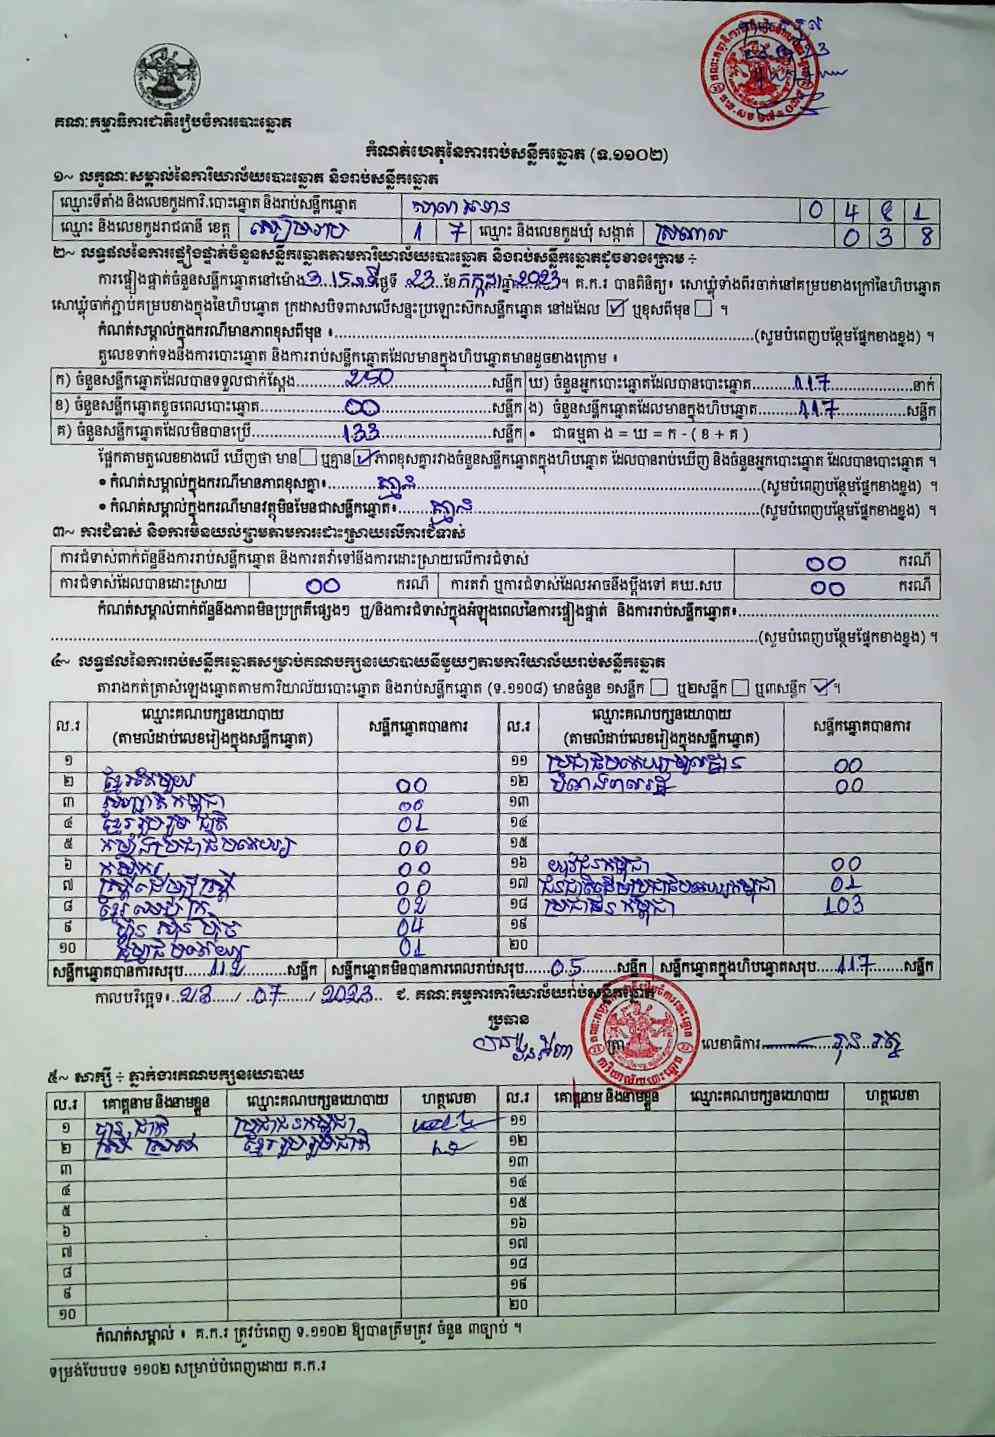 គណៈកម្មាធិការជាតិរៀបចំការបោះឆ្នោត
កំណត់ហេតុនៃការរាប់សន្លឹកឆ្នោត (ទ.១១០២)
១~ លក្ខណៈសម្គាល់នៃការិយាល័យបោះឆ្នោត និងរាប់សន្លឹកឆ្នោត
ឈ្មោះទីតាំង និងលេខកូដការិ.បោះឆ្នោត និងរាប់សន្លឹកឆ្នោត 0 4 8 1
ឈ្មោះ និងលេខកូដរាជធានី ខេត្ត សៀមរាប 1 7 ឈ្មោះ និងលេខកូដឃុំ សង្កាត់ 0 3 8
២~ លទ្ធផលនៃការផ្ទៀងផ្ទាត់ចំនួនសន្លឹកឆ្នោតតាមការិយាល័យបោះឆ្នោត និងរាប់សន្លឹកឆ្នោតដូចខាងក្រោម ÷
ការផ្ទៀងផ្ទាត់ចំនួនសន្លឹកឆ្នោតនៅម៉ោង 3:15 នាទី ថ្ងៃទី 23 ខែ កក្កដា ឆ្នាំ 2023 ។ គ.ក.រ បានពិនិត្យ៖ សោឃ្លុំទាំងពីរចាក់នៅគម្របខាងក្រៅនៃហិបឆ្នោត
សោឃ្លុំចាក់ភ្ជាប់គម្របខាងក្នុងនៃហិបឆ្នោត ក្រដាសបិទពាសលើសន្ទះប្រឡោះស៊កសន្លឹកឆ្នោត នៅដដែល ☑ ឬខុសពីមុន ☐ ។
កំណត់សម្គាល់ក្នុងករណីមានភាពខុសពីមុន ៖ (សូមបំពេញបន្ថែមផ្នែកខាងខ្នង) ។
តួលេខទាក់ទងនឹងការបោះឆ្នោត និងការរាប់សន្លឹកឆ្នោតដែលមានក្នុងហិបឆ្នោតមានដូចខាងក្រោម ៖
ក) ចំនួនសន្លឹកឆ្នោតដែលបានទទួលជាក់ស្តែង 250 សន្លឹក ឃ) ចំនួនអ្នកបោះឆ្នោតដែលបានបោះឆ្នោត 117 នាក់
ខ) ចំនួនសន្លឹកឆ្នោតខូចពេលបោះឆ្នោត 00 សន្លឹក ង) ចំនួនសន្លឹកឆ្នោតដែលមានក្នុងហិបឆ្នោត 117 សន្លឹក
គ) ចំនួនសន្លឹកឆ្នោតដែលមិនបានប្រើ 133 សន្លឹក • ជាធម្មតា ង = ឃ = ក - ( ខ + គ )
ផ្អែកតាមតួលេខខាងលើ ឃើញថា មាន ☐ ឬគ្មាន ☑ ភាពខុសគ្នារវាងចំនួនសន្លឹកឆ្នោតក្នុងហិបឆ្នោត ដែលបានរាប់ឃើញ និងចំនួនអ្នកបោះឆ្នោត ដែលបានបោះឆ្នោត ។
• កំណត់សម្គាល់ក្នុងករណីមានភាពខុសគ្នា៖ គ្មាន (សូមបំពេញបន្ថែមផ្នែកខាងខ្នង) ។
• កំណត់សម្គាល់ក្នុងករណីមានវត្ថុមិនមែនជាសន្លឹកឆ្នោត៖ គ្មាន (សូមបំពេញបន្ថែមផ្នែកខាងខ្នង) ។
៣~ ការជំទាស់ និងការមិនយល់ព្រមតាមការដោះស្រាយលើការជំទាស់
ការជំទាស់ពាក់ព័ន្ធនឹងការរាប់សន្លឹកឆ្នោត និងការតវ៉ាទៅនឹងការដោះស្រាយលើការជំទាស់ 00 ករណី
ការជំទាស់ដែលបានដោះស្រាយ 00 ករណី ការតវ៉ា ឬការជំទាស់ដែលអាចនឹងប្តឹងទៅ គឃ.សប 00 ករណី
កំណត់សម្គាល់ពាក់ព័ន្ធនឹងភាពមិនប្រក្រតីផ្សេងៗ ឬ/និងការជំទាស់ក្នុងអំឡុងពេលនៃការផ្ទៀងផ្ទាត់ និងការរាប់សន្លឹកឆ្នោត៖
(សូមបំពេញបន្ថែមផ្នែកខាងខ្នង) ។
៤~ លទ្ធផលនៃការរាប់សន្លឹកឆ្នោតសម្រាប់គណបក្សនយោបាយនីមួយៗតាមការិយាល័យរាប់សន្លឹកឆ្នោត
តារាងកត់ត្រាសំឡេងឆ្នោតតាមការិយាល័យបោះឆ្នោត និងរាប់សន្លឹកឆ្នោត (ទ.១១០៨) មានចំនួន ១សន្លឹក ☐ ឬ២សន្លឹក ☐ ឬ៣សន្លឹក ☑ ។
ល.រ ឈ្មោះគណបក្សនយោបាយ (តាមលំដាប់លេខរៀងក្នុងសន្លឹកឆ្នោត) សន្លឹកឆ្នោតបានការ ល.រ ឈ្មោះគណបក្សនយោបាយ (តាមលំដាប់លេខរៀងក្នុងសន្លឹកឆ្នោត) សន្លឹកឆ្នោតបានការ
១ ១១ ប្រជាធិបតេយ្យមូលដ្ឋាន 00
២ ខ្មែរតែមួយ 00 ១២ 00
៣ សញ្ជាតិកម្ពុជា 00 ១៣
៤ ខ្មែររួបរួមជាតិ 01 ១៤
៥ កម្លាំងប្រជាធិបតេយ្យ 00 ១៥
៦ កសិករ 00 ១៦ យុវជនកម្ពុជា 00
៧ ស្ត្រីដើម្បីស្ត្រី 00 ១៧ ជនជាតិដើមប្រជាធិបតេយ្យកម្ពុជា 01
៨ ខ្មែរ 02 ១៨ ប្រជាជនកម្ពុជា 103
៩ ហ៊្វុនស៊ិនប៉ិច 04 ១៩
១០ ធម្មាធិបតេយ្យ 01 ២០
សន្លឹកឆ្នោតបានការសរុប 112 សន្លឹក សន្លឹកឆ្នោតមិនបានការពេលរាប់សរុប 05 សន្លឹក សន្លឹកឆ្នោតក្នុងហិបឆ្នោតសរុប 117 សន្លឹក
កាលបរិច្ឆេទ៖ 23 / 07 / 2023 ជ. គណៈកម្មការការិយាល័យរាប់សន្លឹកឆ្នោត
ប្រធាន
ត្រា លេខាធិការ
៥~ សាក្សី ÷ ភ្នាក់ងារគណបក្សនយោបាយ
ល.រ គោត្តនាម និងនាមខ្លួន ឈ្មោះគណបក្សនយោបាយ ហត្ថលេខា ល.រ គោត្តនាម និងនាមខ្លួន ឈ្មោះគណបក្សនយោបាយ ហត្ថលេខា
១ ប្រជាជនកម្ពុជា ១១
២ ខ្មែររួបរួមជាតិ ១២
៣ ១៣
៤ ១៤
៥ ១៥
៦ ១៦
៧ ១៧
៨ ១៨
៩ ១៩
១០ ២០
កំណត់សម្គាល់ ៖ គ.ក.រ ត្រូវបំពេញ ទ.១១០២ ឱ្យបានត្រឹមត្រូវ ចំនួន ៣ច្បាប់ ។
ទម្រង់បែបបទ ១១០២ សម្រាប់បំពេញដោយ គ.ក.រ